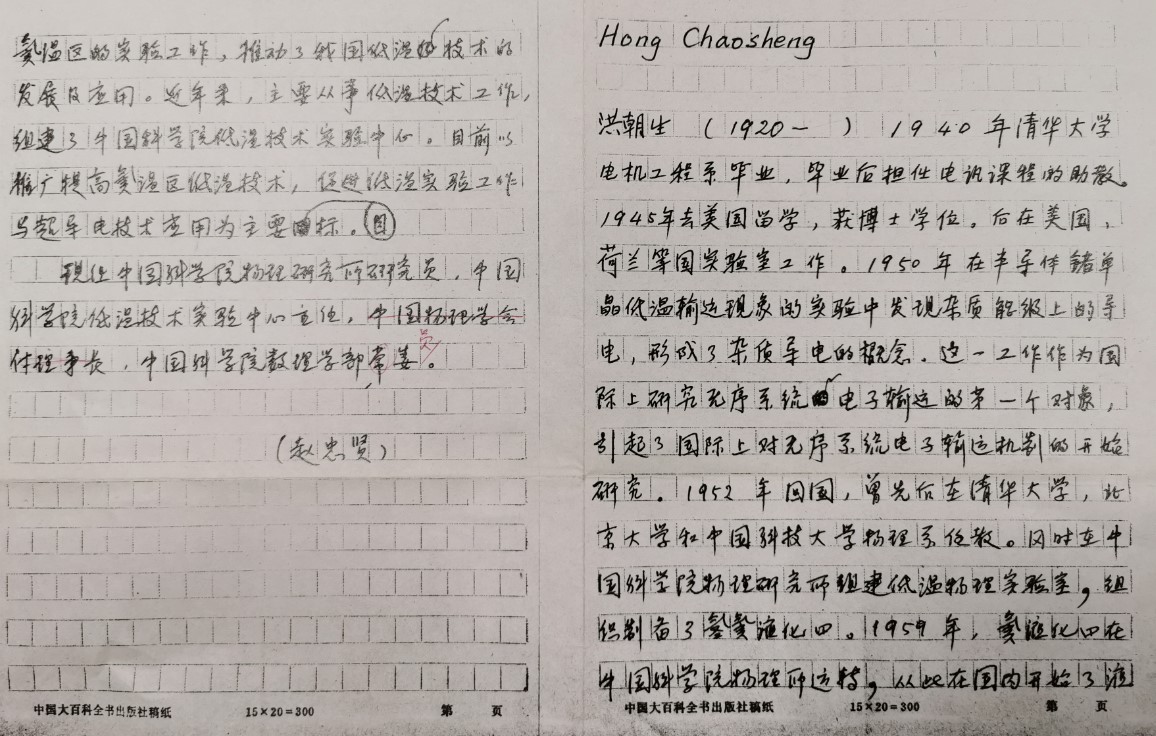 Hong Chaosheng
洪朝生 (1920- ) 1940年清华大学
电机工程系毕业,毕业后担任电讯课程的助教。
1945年去美国留学,获博士学位。后在美国、
荷兰等国实验室工作。1950年在半导体锗单
晶低温输运现象的实验中发现杂质能级上的导
电,形成了杂质导电的概念。这一工作作为国
际上研究无序系统电子输运的第一个对象,
引起了国际上对无序系统电子输运机制的开始
研究。1952年回国,曾先后在清华大学,北
京大学和中国科技大学物理系任教。同时在中
国科学院物理研究所组建低温物理实验室,组
织制备了氢氦液化四。1959年,氦液化四在
中国科学院物理所运转,从此在国内开始了液
中国大百科全书出版社稿纸 15×20=300 第 页
氦温区的实验工作,推动了我国低温技术的
发展及应用。近年来,主要从事低温技术工作,
组建了中国科学院低温技术实验中心。目前以
推广提高氦温区低温技术,促进低温实验工作
与超导电技术应用为主要目标。
现任中国科学院物理研究所研究员,中国
科学院低温技术实验中心主任,中国物理学会
付理事长,中国科学院数理学部常委员。
(赵忠贤)
中国大百科全书出版社稿纸 15×20=300 第 页